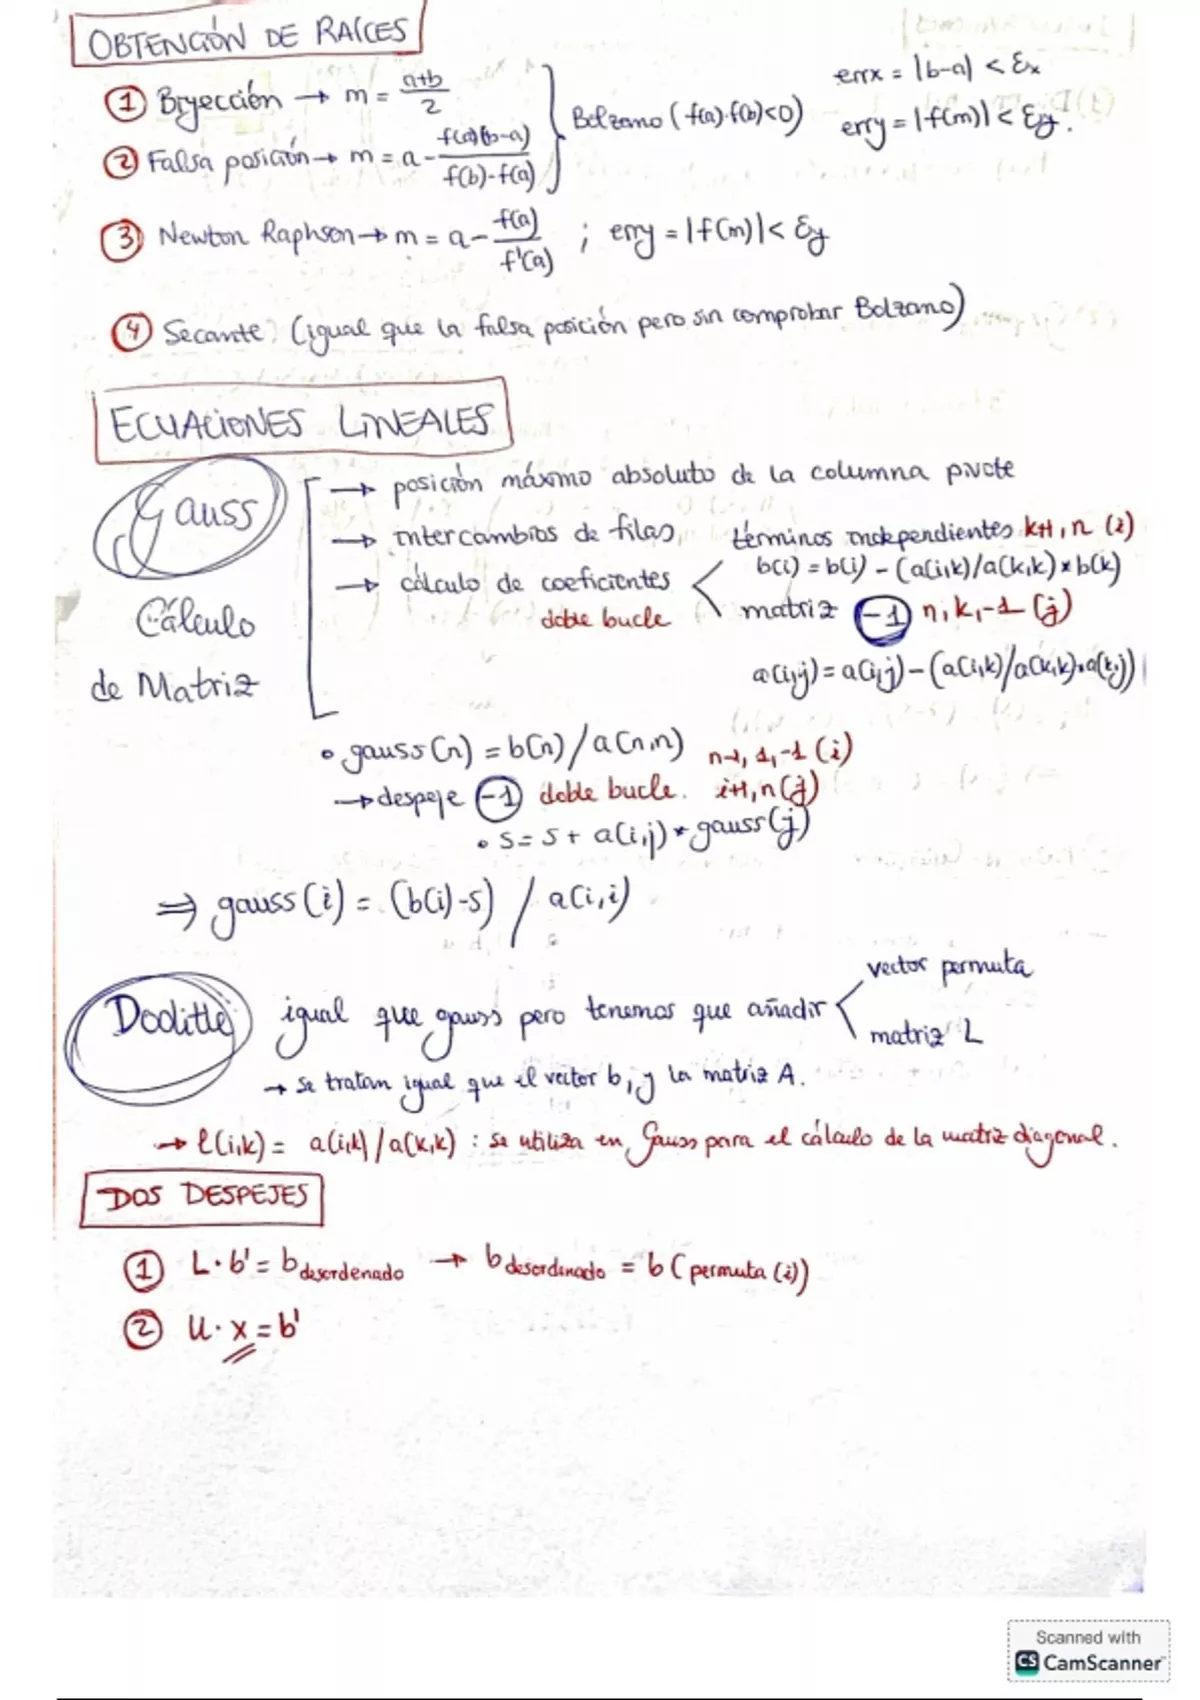 OBTENCIÓN DE RAÍCES
① Biyección → m = a+b / 2
② Falsa posición → m = a - f(a)(b-a) / f(b)-f(a)
Bolzano (f(a)·f(b)<0)
errx = |b-a| < Ɛx
erry = |f(m)| < Ɛy.
③ Newton Raphson → m = a - f(a) / f'(a) ; erry = |f(m)| < Ɛy
④ Secante: (igual que la falsa posición pero sin comprobar Bolzano)
ECUACIONES LINEALES
Gauss
Cálculo
de Matriz
→ posición máximo absoluto de la columna pivote
→ intercambios de filas
→ cálculo de coeficientes
doble bucle
términos independientes k+1, n (i)
b(i) = b(i) - (a(i,k)/a(k,k) * b(k)
matriz -1 n, k, -1 (j)
a(i,j) = a(i,j) - (a(i,k)/a(k,k)*a(k,j))
• gauss(n) = b(n) / a(n,n) n-1, 1, -1 (i)
→ despeje -1 doble bucle. i+1, n (j)
• s = s + a(i,j) * gauss(j)
⇒ gauss(i) = (b(i)-s) / a(i,i)
Doolitle igual que gauss pero tenemos que añadir
vector permuta
matriz L
→ se tratan igual que el vector b, y la matriz A.
→ l(i,k) = a(i,k) / a(k,k) : se utiliza en Gauss para el cálculo de la matriz diagonal.
DOS DESPEJES
① L·b' = b desordenado → b desordenado = b (permuta (i))
② U·x = b'
Scanned with
CS CamScanner